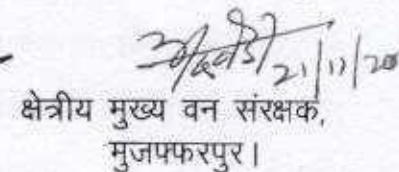 21/11/20
क्षेत्रीय मुख्य वन संरक्षक,
मुजफ्फरपुर।